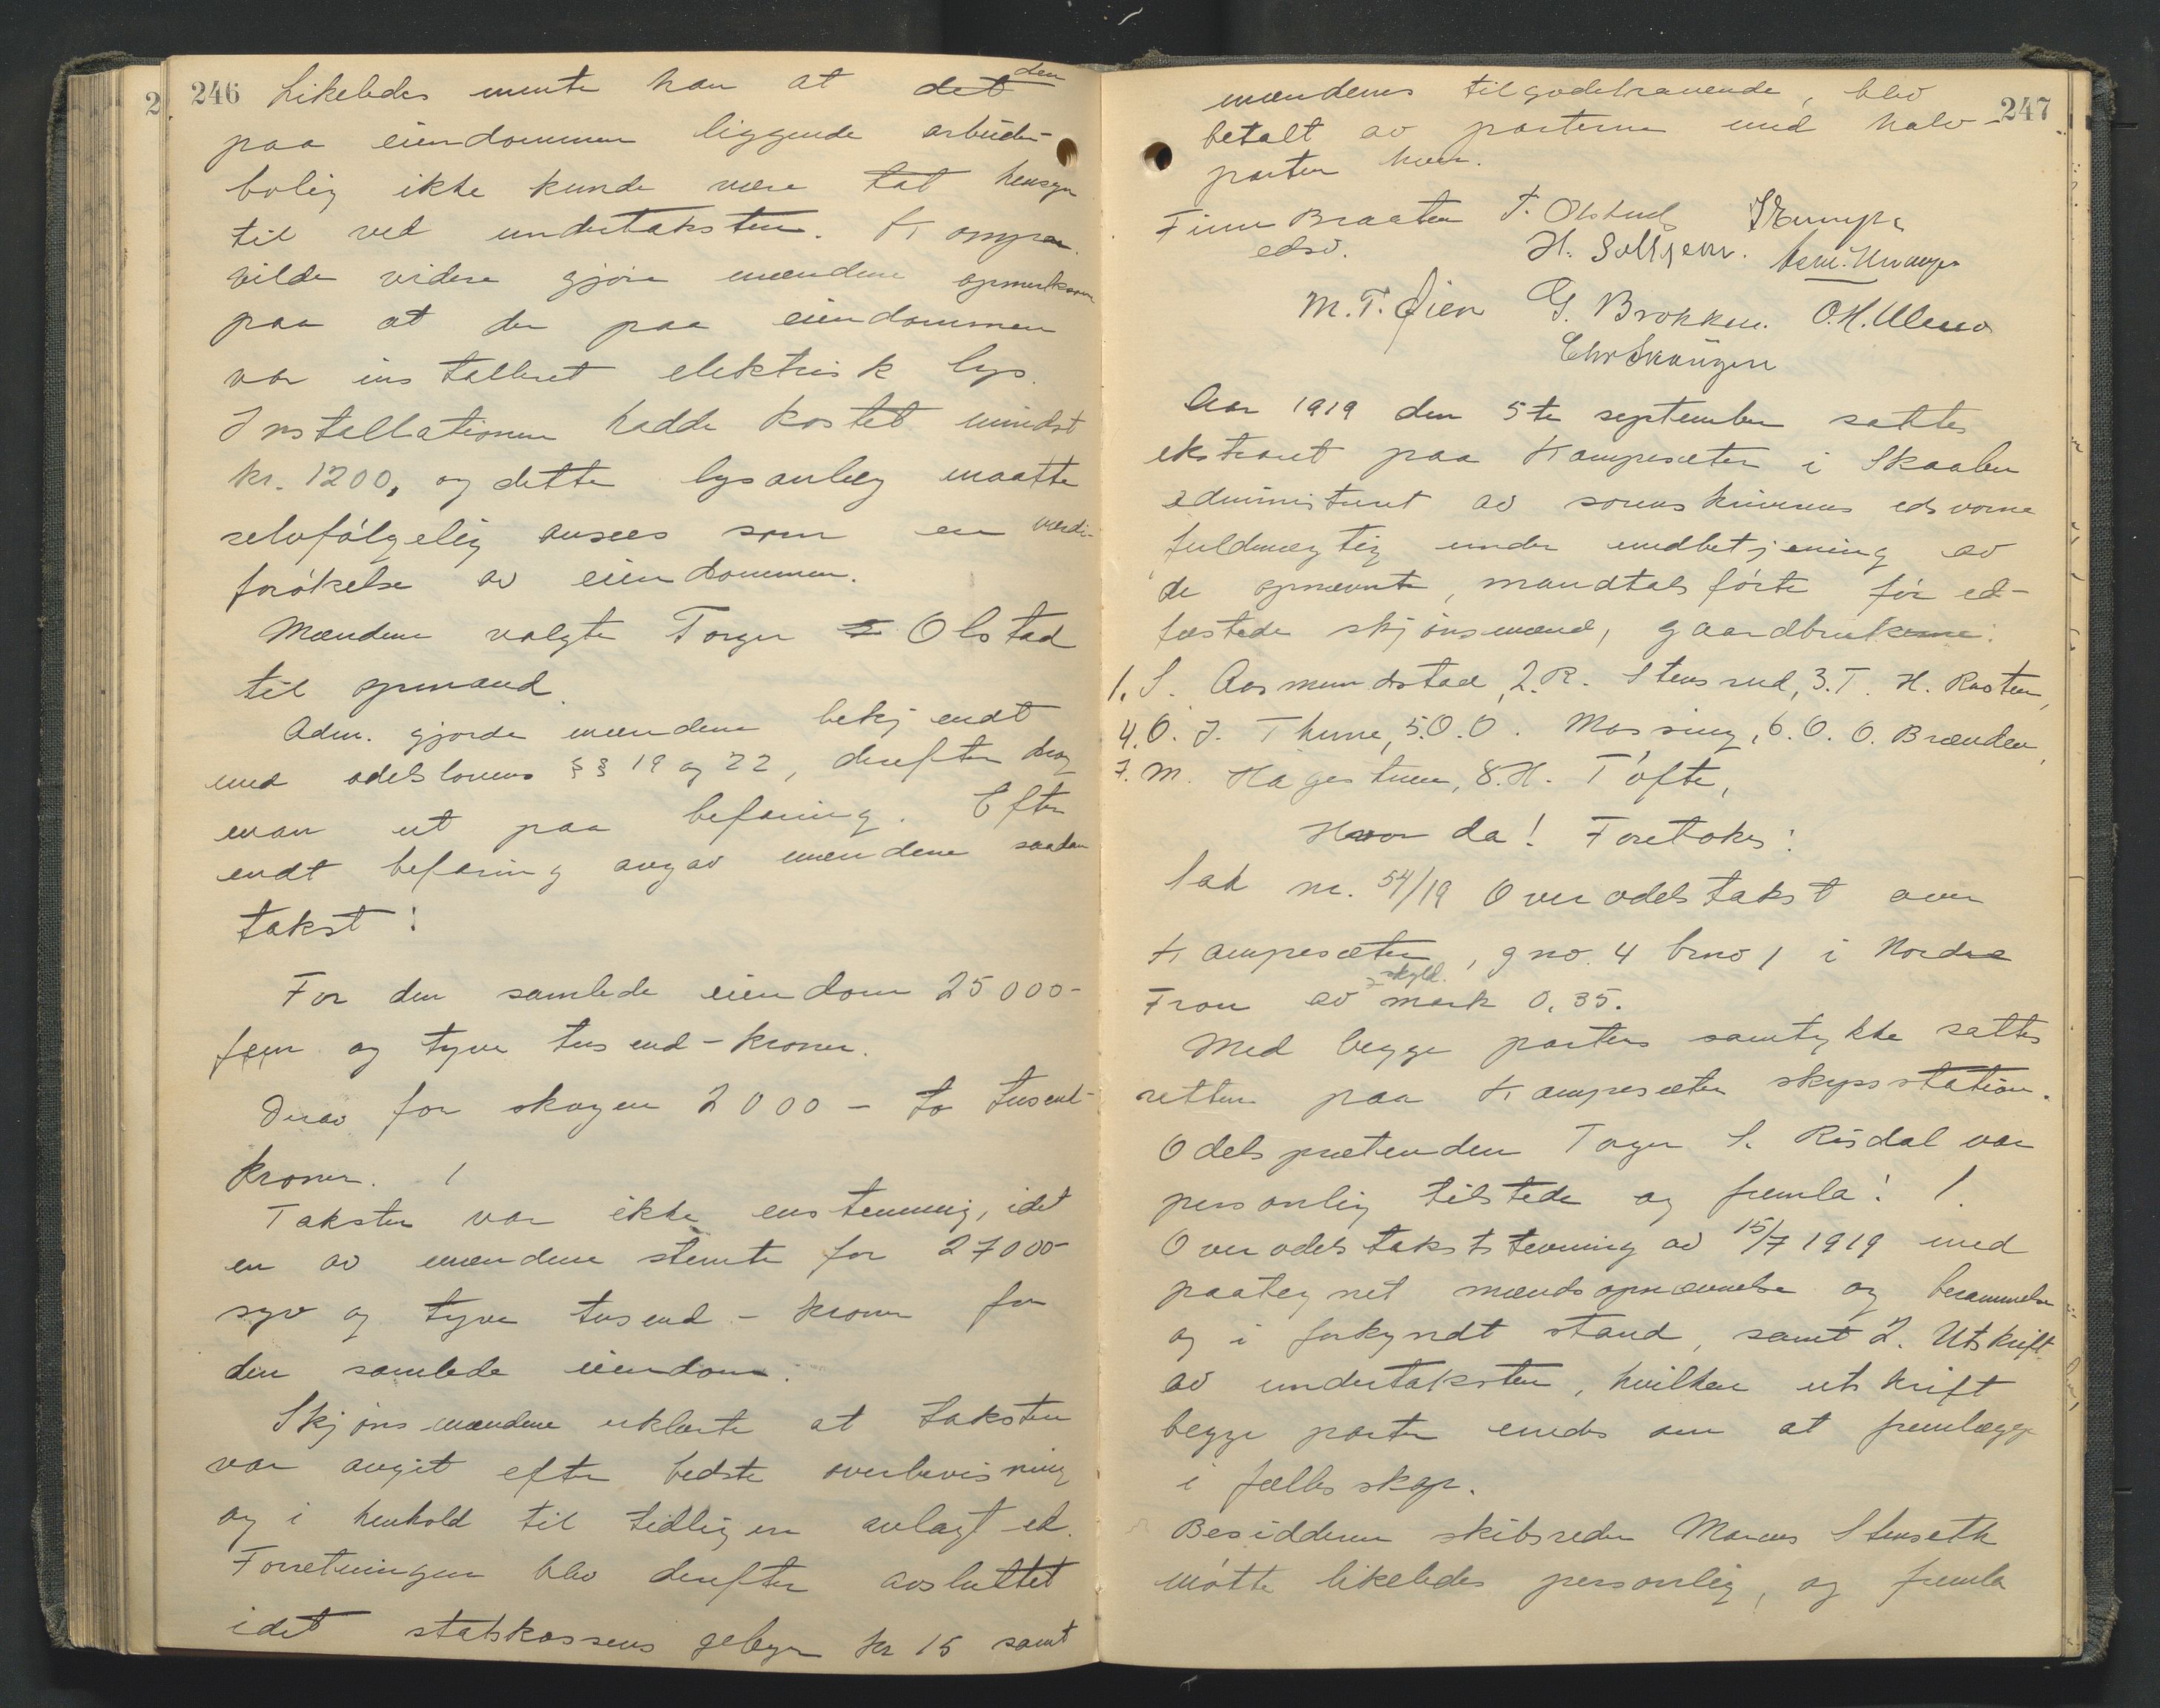 246 Likeledes mente han at det den
paa eiendommen liggende arbeider-
bolig ikke kunde være tat hensyn
til ved undertaksten. Komp.
vilde videre gjøre mændene opmerksom
paa at der paa eiendommen
var installeret elektrisk lys.
Installationen hadde kostet mindst
kr. 1200, og dette lysanlæg maatte
selvfølgelig ansees som en værdi-
forøkelse av eiendommen.
Mændene valgte Torger Olstad
til opmand.
Adm. gjorde mændene bekjendt
med odelslovens §§ 19 og 22, derefter drog
man ut paa befaring. Efter
endt befaring avgav mændene saadan
takst:
For den samlede eiendom 25000-
fem og tyve tusend - kroner.
Derav for skogen 2000 - to tusend-
kroner. /
Taksten var ikke enstemmig, idet
en av mændene stemte for 27000-
syv og tyve tusend - kroner for
den samlede eiendom.
Skjønsmændene erklærte at taksten
var avgit efter bedste overbevisning
og i henhold til tidligere avlagt ed.
Forretningen blev derefter avsluttet
idet statskassens gebyr kr 15 samt
247
mændenes tilgodehavende, blev
betalt av parterne med halv-
parten hver.
Finn Braaten T. Olstad S Kampe
edsv. H. Solhjem.
M. T. Øien G. Brokken. O. H. Ulen
Chr Skaugen
Aar 1919 den 5te september sattes
ekstraret paa Kampesæter i Skaabu
administrert av sorenskriverens edsvorne
fuldmægtig under medbetjening av
de opnævnte, mandtalsførte før ed-
fæstede skjønsmænd, gaardbrukerne:
1. S. Aasmundstad, 2. R. Stensrud, 3. T. H. Rusten,
4. O. J. Thune, 5. O. O. Mossing, 6. O. O. Brænden,
7. M. Hagestuen, 8. H. Tofte,
Hvor da! Foretokes:
Sak nr. 54/19 Overodelstakst over
Kampesæter, gno. 4 bno 1 i Nordre
Fron av skyld. mark 0,35.
Med begge parters samtykke sattes
retten paa Kampesæter skysstation.
Odelsprætendenten Torger S. Risdal var
personlig tilstede og fremla: 1.
Overodelstakststevning av 15/7 1919 med
paategnet mændsopnævnelse og berammelse
og i forkyndt stand, samt 2. Utskrift
av undertaksten, hvilken utskrift
begge parter enedes om at fremlægge
i fællesskap.
Besidderen skibsreder Marius Stenseth
møtte likeledes personlig, og fremla